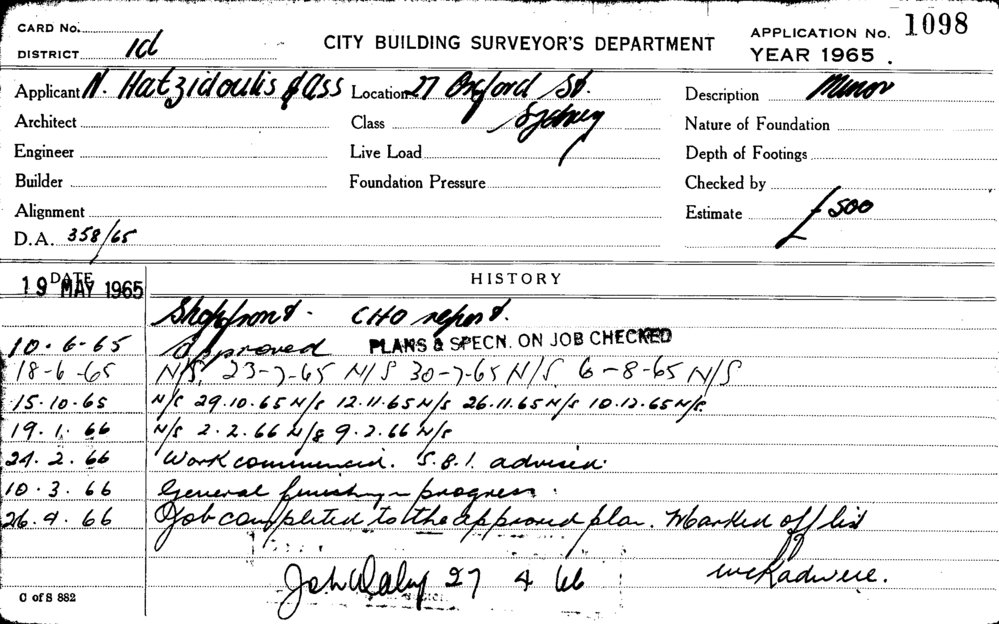 CARD No.
DISTRICT 1d
CITY BUILDING SURVEYOR'S DEPARTMENT
APPLICATION No. 1098
YEAR 1965 .
Applicant N. Hatzidoulis & Ass Location 27 Oxford St. Description Minor
Architect Class Sydney Nature of Foundation
Engineer Live Load Depth of Footings
Builder Foundation Pressure Checked by
Alignment Estimate £500
D.A. 358/65
DATE HISTORY
19 MAY 1965
Shopfront. CHO report.
10.6-65 Approved PLANS & SPECN. ON JOB CHECKED
18-6-65 N/S. 23-7-65 N/S 30-7-65 N/S. 6-8-65 N/S
15.10.65 N/S 29.10.65 N/S 12.11.65 N/S 26.11.65 N/S 10.12.65 N/S.
19.1.66 N/S 2.2.66 N/S 9.2.66 N/S
24.2.66 Work commenced. S.B.I. advised.
10.3.66 General finishing in progress.
26.4.66 Job completed to the approved plan. Marked off list
27 4 66
C of S 882